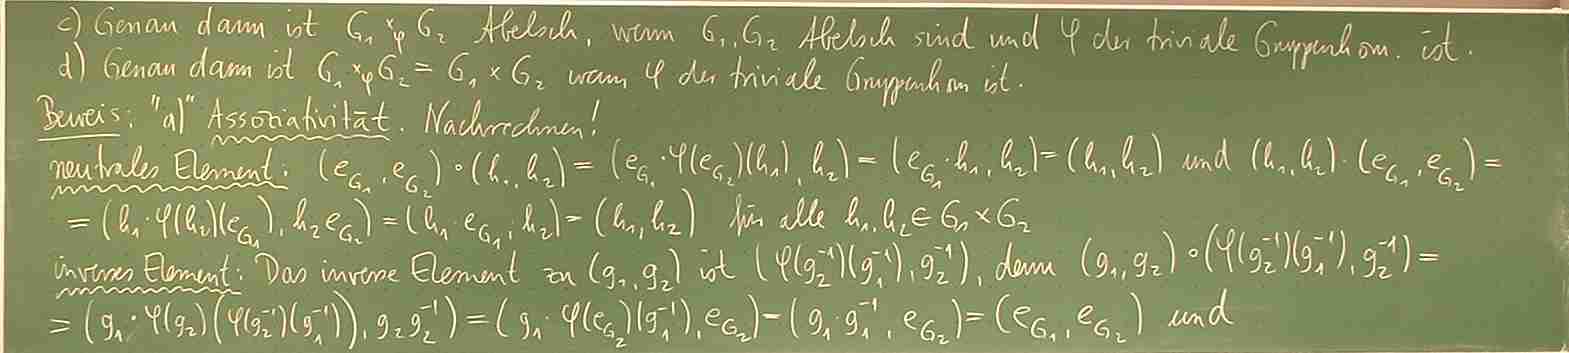 c) Genau dann ist G₁ ×_φ G₂ Abelsch, wenn G₁, G₂ Abelsch sind und φ der triviale Gruppenhom. ist.
d) Genau dann ist G₁ ×_φ G₂ = G₁ × G₂ wenn φ der triviale Gruppenhom ist.
Beweis: "a)" Assoziativität. Nachrechnen!
neutrales Element: (e_{G₁}, e_{G₂}) ∘ (h₁, h₂) = (e_{G₁} · φ(e_{G₂})(h₁), h₂) = (e_{G₁} · h₁, h₂) = (h₁, h₂) und (h₁, h₂) · (e_{G₁}, e_{G₂}) =
= (h₁ · φ(h₂)(e_{G₁}), h₂ e_{G₂}) = (h₁ · e_{G₁}, h₂) = (h₁, h₂) für alle h₁, h₂ ∈ G₁ × G₂
inverses Element: Das inverse Element zu (g₁, g₂) ist (φ(g₂⁻¹)(g₁⁻¹), g₂⁻¹), denn (g₁, g₂) ∘ (φ(g₂⁻¹)(g₁⁻¹), g₂⁻¹) =
= (g₁ · φ(g₂)(φ(g₂⁻¹)(g₁⁻¹)), g₂ g₂⁻¹) = (g₁ · φ(e_{G₂})(g₁⁻¹), e_{G₂}) = (g₁ · g₁⁻¹, e_{G₂}) = (e_{G₁}, e_{G₂}) und